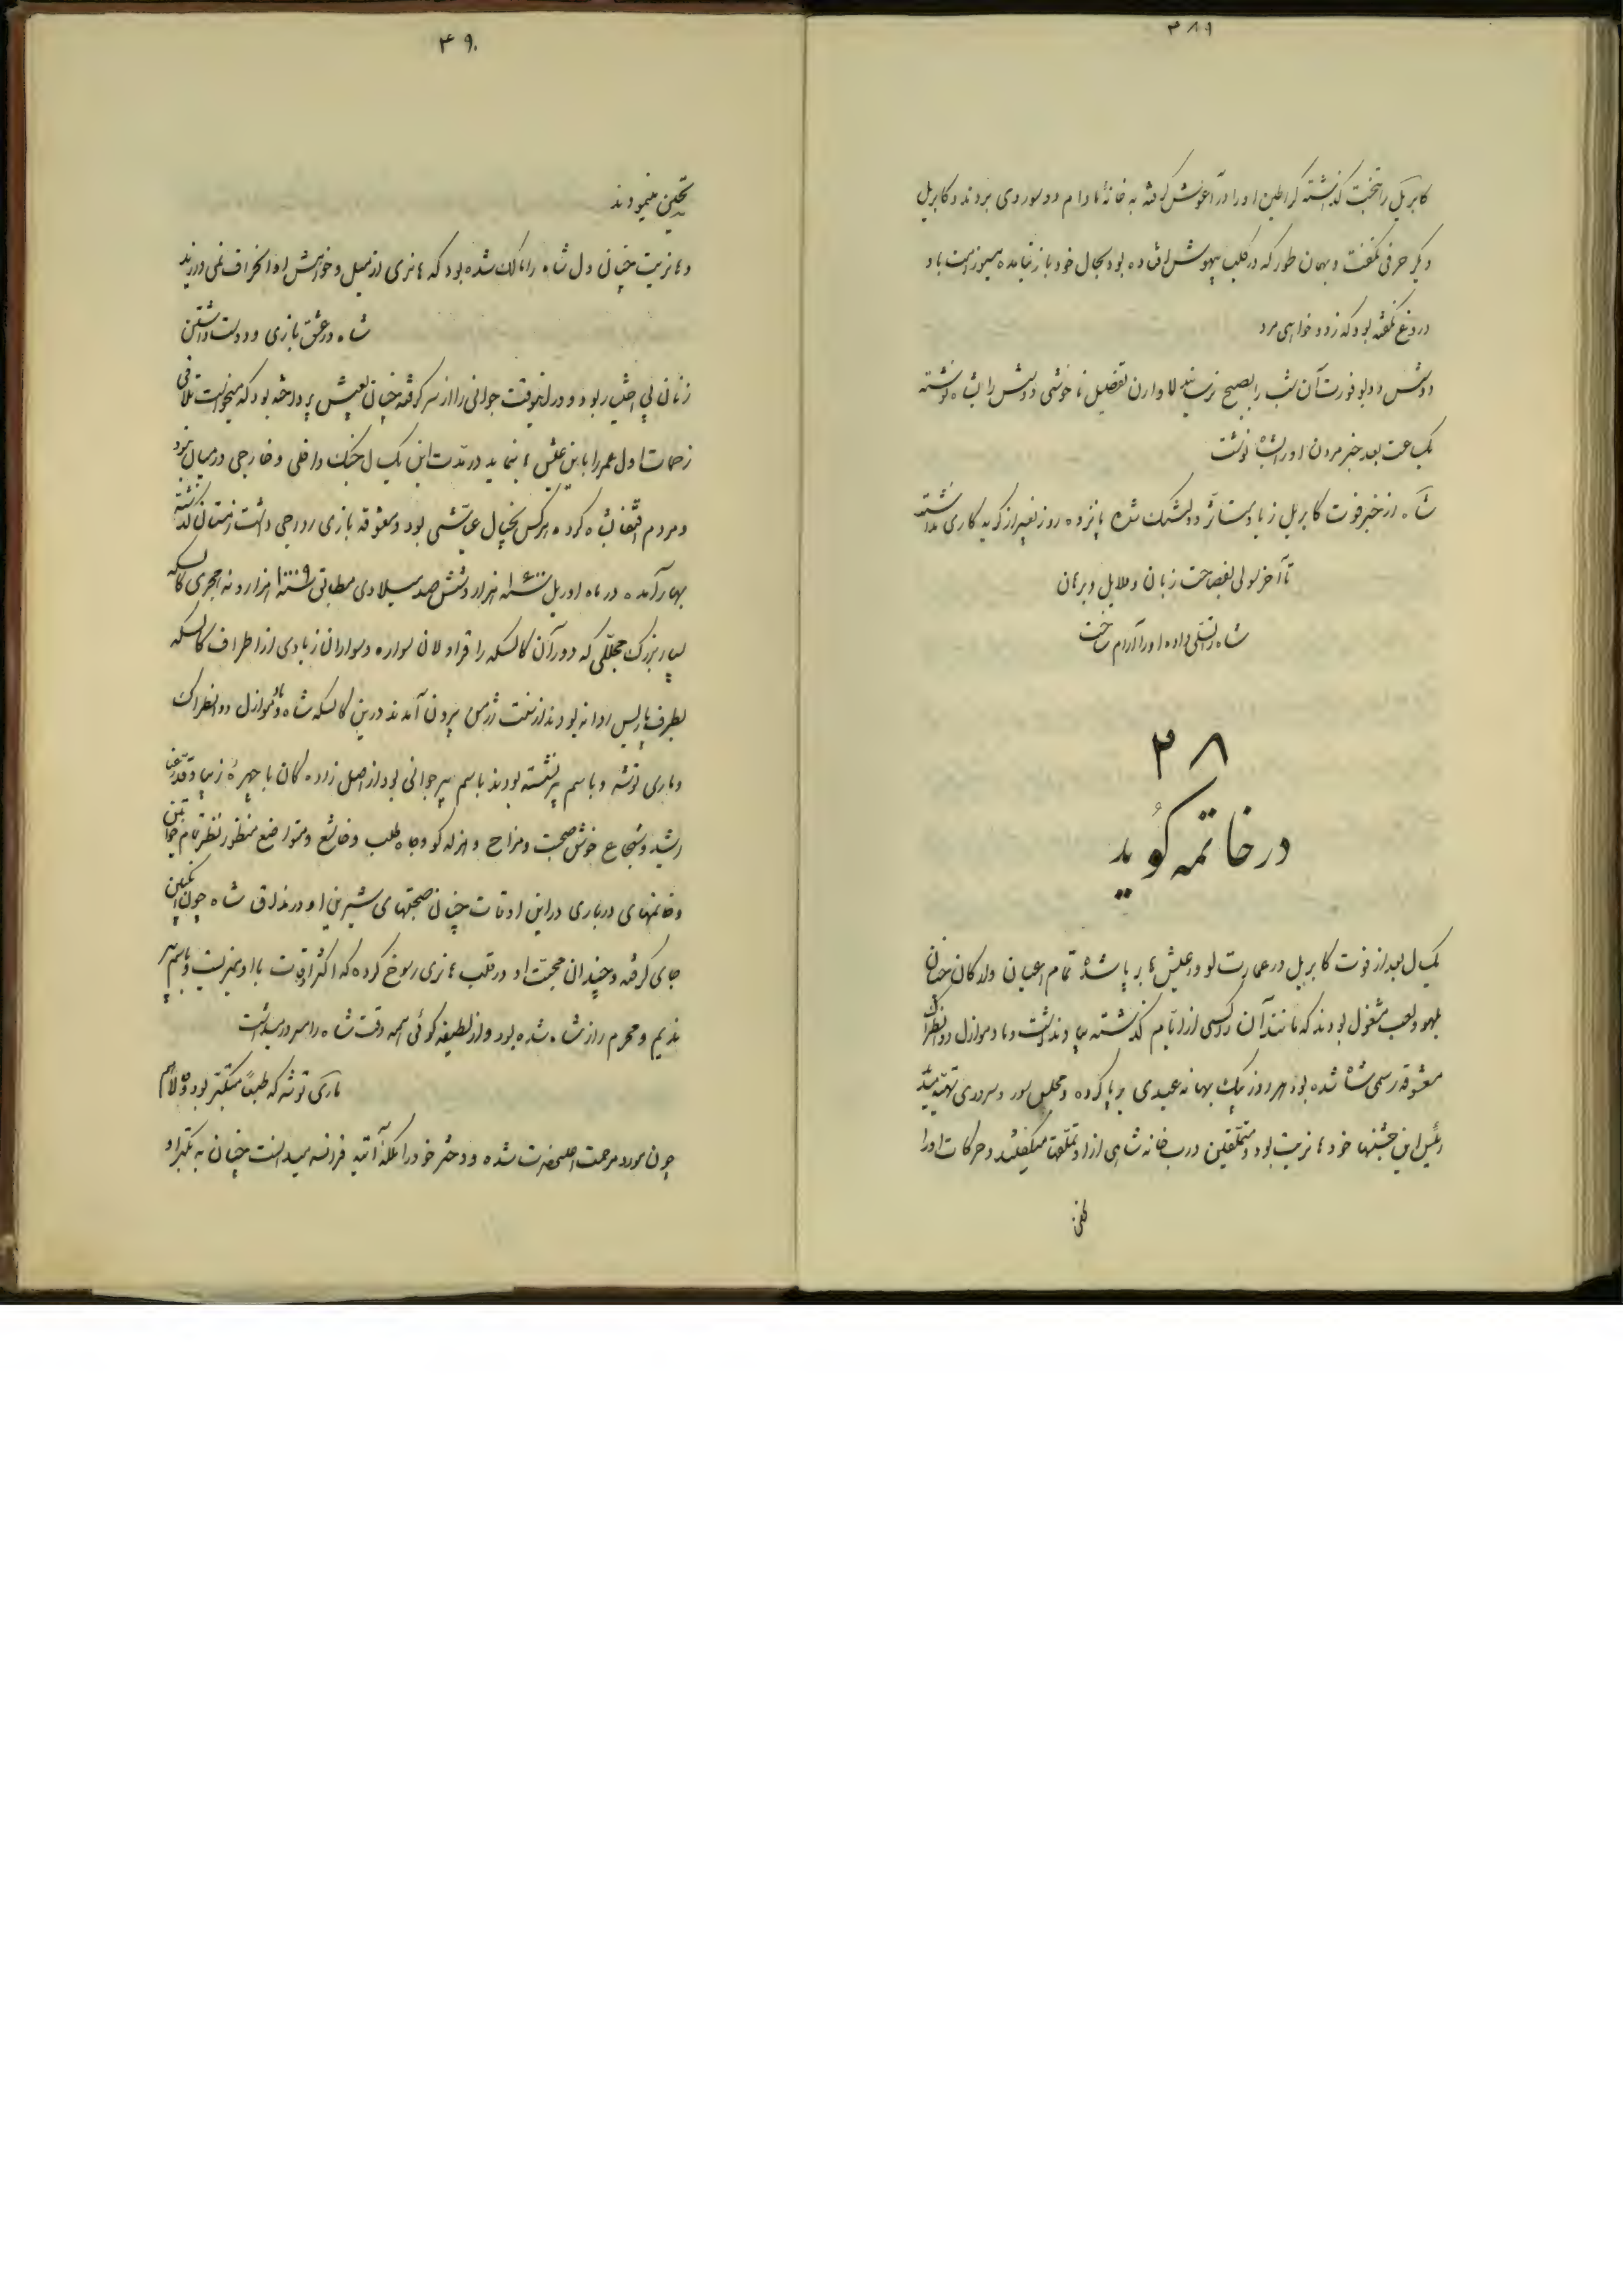 ۳۸۹
کابریل را بتخت گذاشته کراطین او را در آغوش گرفته به خانهٔ مادام دو سوروی بردند و کابریل
دیگر حرفی نگفت و بهمان طور که در کلب بیهوش افتاده بود بحال خود باز نیامده
دروغ نگفته بود که زود خواهی مرد
آن شب را بصبح نرسانید لاوارن تفصیل ناخوشی دوشس را بشاه نوشته
یک ساعت بعد خبر مردن او را بشاه نوشت
شاه از خبر فوت کابریل زیاد متأثر و دلتنگ شده پانزده روز بغیر از گریه کاری نداشت
تا آخر سولی بفصاحت زبان و دلایل و برهان
شاه را تسلی داده او را آرام ساخت
۳۸
در خاتمه گوید
یک سال بعد از فوت کابریل در عمارت لوور عیش ها برپا شده تمام اعیان و ارکان چنان
بلهو و لعب مشغول بودند که مانند آن را کسی از ایام گذشته بیاد نداشت و مادموازل دو انطراک
معشوقه رسمی شاه شده بود هر روز بیک بهانه عیدی برپا کرده و مجلس سور و سروری تهیه میدید
رئیس این جشنها خود هانریت بود و متملقین درب خانه شاهی از او تملقها میگفتند و حرکات او را
۳۹۰
تحسین مینمودند
و هانریت چنان دل شاه را مالک شده بود که هانری از میل و خواهش او انحراف نمی ورزید
شاه در عشق بازی و دوست داشتن
زنان بی اختیار بود و در این وقت جوانی را از سر گرفته چنان بعیش پرداخته بود که میخواست تلافی
زحمات اول عمر را باین عیش ها بنماید در مدت این یک سال جنگ داخلی و خارجی در میان نبود
و مردم اقتفا بشاه کرده هر کس بخیال عیاشی بود و معشوقه بازی رواجی داشت زمستان گذشته
بهار آمده در ماه اوریل سنه ۱۶۰۰ هزار و شش صد میلادی مطابق سنه ۱۰۰۹ هزار و نه هجری کالسکه
بسیار بزرگ مجللی که دور آن کالسکه را قراولان سواره و سواران زیادی از اطراف کالسکه
بطرف پاریس روانه بودند از سنت ژرمن بیرون آمدند در این کالسکه شاه و مادموازل دو انطراک
و ماری توشه و باسم پیر نشسته بودند باسم پیر جوانی بود از اصیل زاده کان با چهرهٔ زیبا و قد رعنا
رشید و شجاع خوش صحبت و مزاح و هزله گو و جاه طلب و خاشع و متواضع منظور نظر تمام خواتین
و خانمهای درباری در این اوقات چنان صحبتهای شیرین او در مذاق شاه چون انگبین
جای گرفته و چندان محبت او در قلب هانری رسوخ کرده که اکثر اوقات با او میزیست و باسم پیر
ندیم و محرم راز شاه شده بود و از لطیفه گوئی همه وقت شاه را مسرور میداشت
ماری توشه که طبعاً متکبر بود
چون مورد مرحمت اعلیحضرت شده و دختر خود را ملکهٔ آتیه فرانسه میدانست چنان به تکبر او